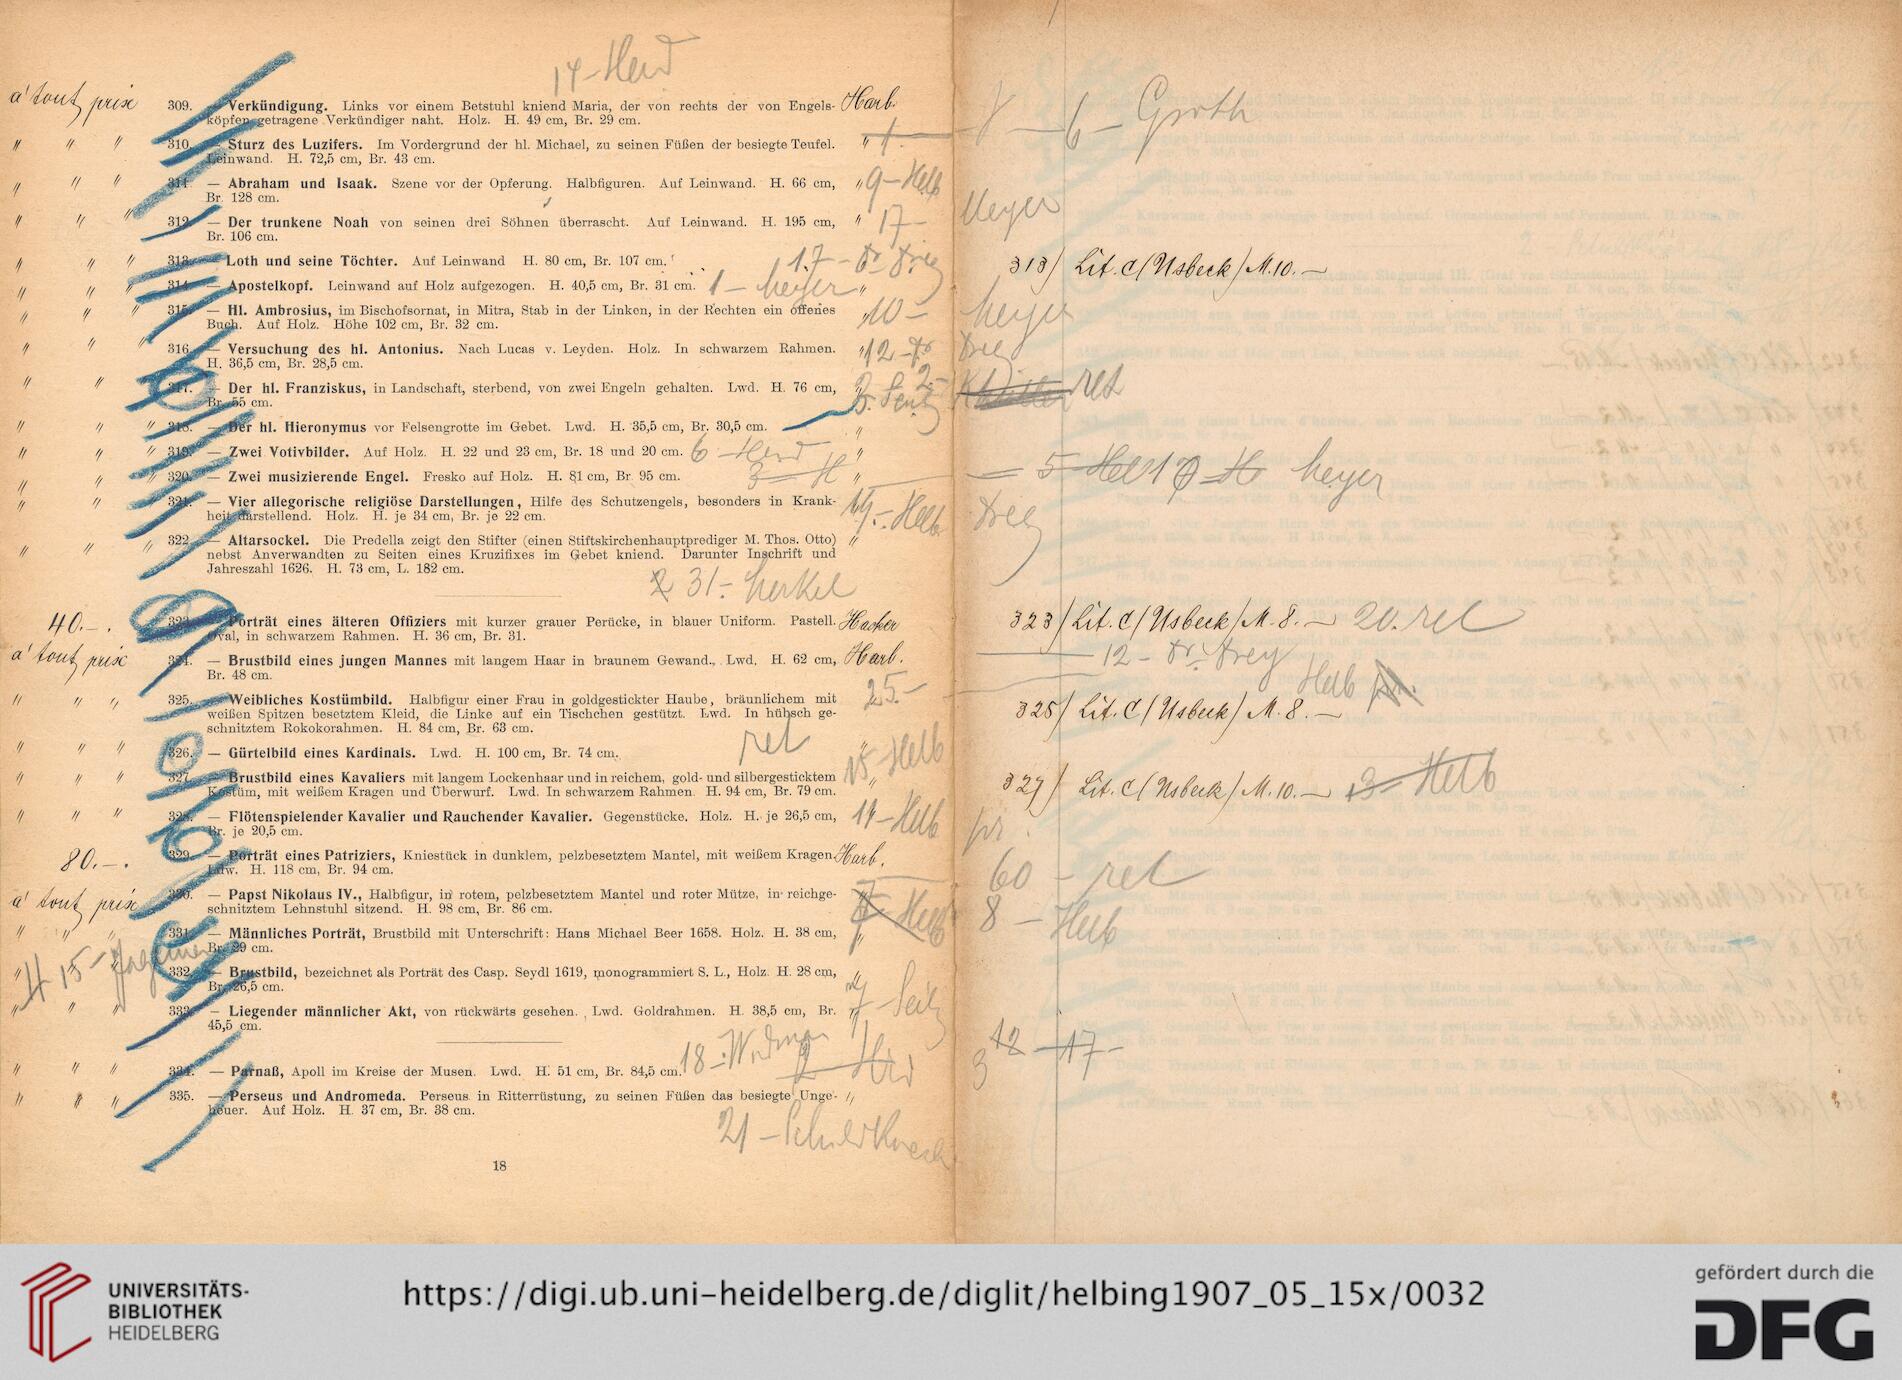 14 - Herd
a' tout prix 309. Verkündigung. Links vor einem Betstuhl kniend Maria, der von rechts der von Engels- Harb.
köpfen getragene Verkündiger naht. Holz. H. 49 cm, Br. 29 cm.
6 - Groth
" " " 310. — Sturz des Luzifers. Im Vordergrund der hl. Michael, zu seinen Füßen der besiegte Teufel. " 1.
Leinwand. H. 72,5 cm, Br. 43 cm.
" " " 311. — Abraham und Isaak. Szene vor der Opferung. Halbfiguren. Auf Leinwand. H. 66 cm, " 9 - Helb
Br. 128 cm.
" " " 312. — Der trunkene Noah von seinen drei Söhnen überrascht. Auf Leinwand. H. 195 cm, " 17 - Meyer
Br. 106 cm.
" " " 313. — Loth und seine Töchter. Auf Leinwand H. 80 cm, Br. 107 cm. 17 - Dr. Drey
313/ Lit. C (Usbeck) M. 10. —
" " " 314. — Apostelkopf. Leinwand auf Holz aufgezogen. H. 40,5 cm, Br. 31 cm. 1 - Meyer "
" " " 315. — Hl. Ambrosius, im Bischofsornat, in Mitra, Stab in der Linken, in der Rechten ein offenes " 10 - Meyer
Buch. Auf Holz. Höhe 102 cm, Br. 32 cm.
" " " 316. — Versuchung des hl. Antonius. Nach Lucas v. Leyden. Holz. In schwarzem Rahmen. " 12 - Dr Drey
H. 36,5 cm, Br. 28,5 cm.
" " " 317. — Der hl. Franziskus, in Landschaft, sterbend, von zwei Engeln gehalten. Lwd. H. 76 cm, 2.- ret
Br. 55 cm.
" " " 318. — Der hl. Hieronymus vor Felsengrotte im Gebet. Lwd. H. 35,5 cm, Br. 30,5 cm. "
" " " 319. — Zwei Votivbilder. Auf Holz. H. 22 und 23 cm, Br. 18 und 20 cm. 6 - Herd "
" " " 320. — Zwei musizierende Engel. Fresko auf Holz. H. 81 cm, Br. 95 cm. 3 - H "
Meyer
" " " 321. — Vier allegorische religiöse Darstellungen, Hilfe des Schutzengels, besonders in Krank- Helb Drey
heit darstellend. Holz. H. je 34 cm, Br. je 22 cm.
" " " 322. — Altarsockel. Die Predella zeigt den Stifter (einen Stiftskirchenhauptprediger M. Thos. Otto) "
nebst Anverwandten zu Seiten eines Kruzifixes im Gebet kniend. Darunter Inschrift und
Jahreszahl 1626. H. 73 cm, L. 182 cm.
31.- Merkel
40.—. 323. Porträt eines älteren Offiziers mit kurzer grauer Perücke, in blauer Uniform. Pastell. Hacker
Oval, in schwarzem Rahmen. H. 36 cm, Br. 31.
323/ Lit. C (Usbeck) M. 8. — 20. ret
a' tout prix 324. — Brustbild eines jungen Mannes mit langem Haar in braunem Gewand. Lwd. H. 62 cm, Harb.
Br. 48 cm.
12 - Dr. Drey
" " " 325. — Weibliches Kostümbild. Halbfigur einer Frau in goldgestickter Haube, bräunlichem mit 25.- Helb
weißen Spitzen besetztem Kleid, die Linke auf ein Tischchen gestützt. Lwd. In hübsch ge-
schnitztem Rokokorahmen. H. 84 cm, Br. 63 cm.
325/ Lit. C (Usbeck) M. 8. —
" " " 326. — Gürtelbild eines Kardinals. Lwd. H. 100 cm, Br. 74 cm. ret
" " " 327. — Brustbild eines Kavaliers mit langem Lockenhaar und in reichem, gold- und silbergesticktem 15 - Helb
Kostüm, mit weißem Kragen und Überwurf. Lwd. In schwarzem Rahmen. H. 94 cm, Br. 79 cm.
327/ Lit. C (Usbeck) M. 10. — 13 - Helb
" " " 328. — Flötenspielender Kavalier und Rauchender Kavalier. Gegenstücke. Holz. H. je 26,5 cm, Helb
Br. je 20,5 cm.
80.—. 329. — Porträt eines Patriziers, Kniestück in dunklem, pelzbesetztem Mantel, mit weißem Kragen. Harb.
Ldw. H. 118 cm, Br. 94 cm.
60 - ret
a' tout prix 330. — Papst Nikolaus IV., Halbfigur, in rotem, pelzbesetztem Mantel und roter Mütze, in reichge- Helb
schnitztem Lehnstuhl sitzend. H. 98 cm, Br. 86 cm.
8 - Helb
" " " 331. — Männliches Porträt, Brustbild mit Unterschrift: Hans Michael Beer 1658. Holz. H. 38 cm, "
Br. 29 cm.
15 -
" " " 332. — Brustbild, bezeichnet als Porträt des Casp. Seydl 1619, monogrammiert S. L., Holz. H. 28 cm, "
Br. 26,5 cm.
" " " 333. — Liegender männlicher Akt, von rückwärts gesehen. Lwd. Goldrahmen. H. 38,5 cm, Br. 7 - Seitz
45,5 cm.
12 - 17 -
" " " 334. — Parnaß, Apoll im Kreise der Musen. Lwd. H. 51 cm, Br. 84,5 cm. 18 -
" " " 335. — Perseus und Andromeda. Perseus in Ritterrüstung, zu seinen Füßen das besiegte Unge- "
heuer. Auf Holz. H. 37 cm, Br. 38 cm.
21 - Schildknecht
18
UNIVERSITÄTS-
BIBLIOTHEK
HEIDELBERG
https://digi.ub.uni-heidelberg.de/diglit/helbing1907_05_15x/0032
gefördert durch die
DFG